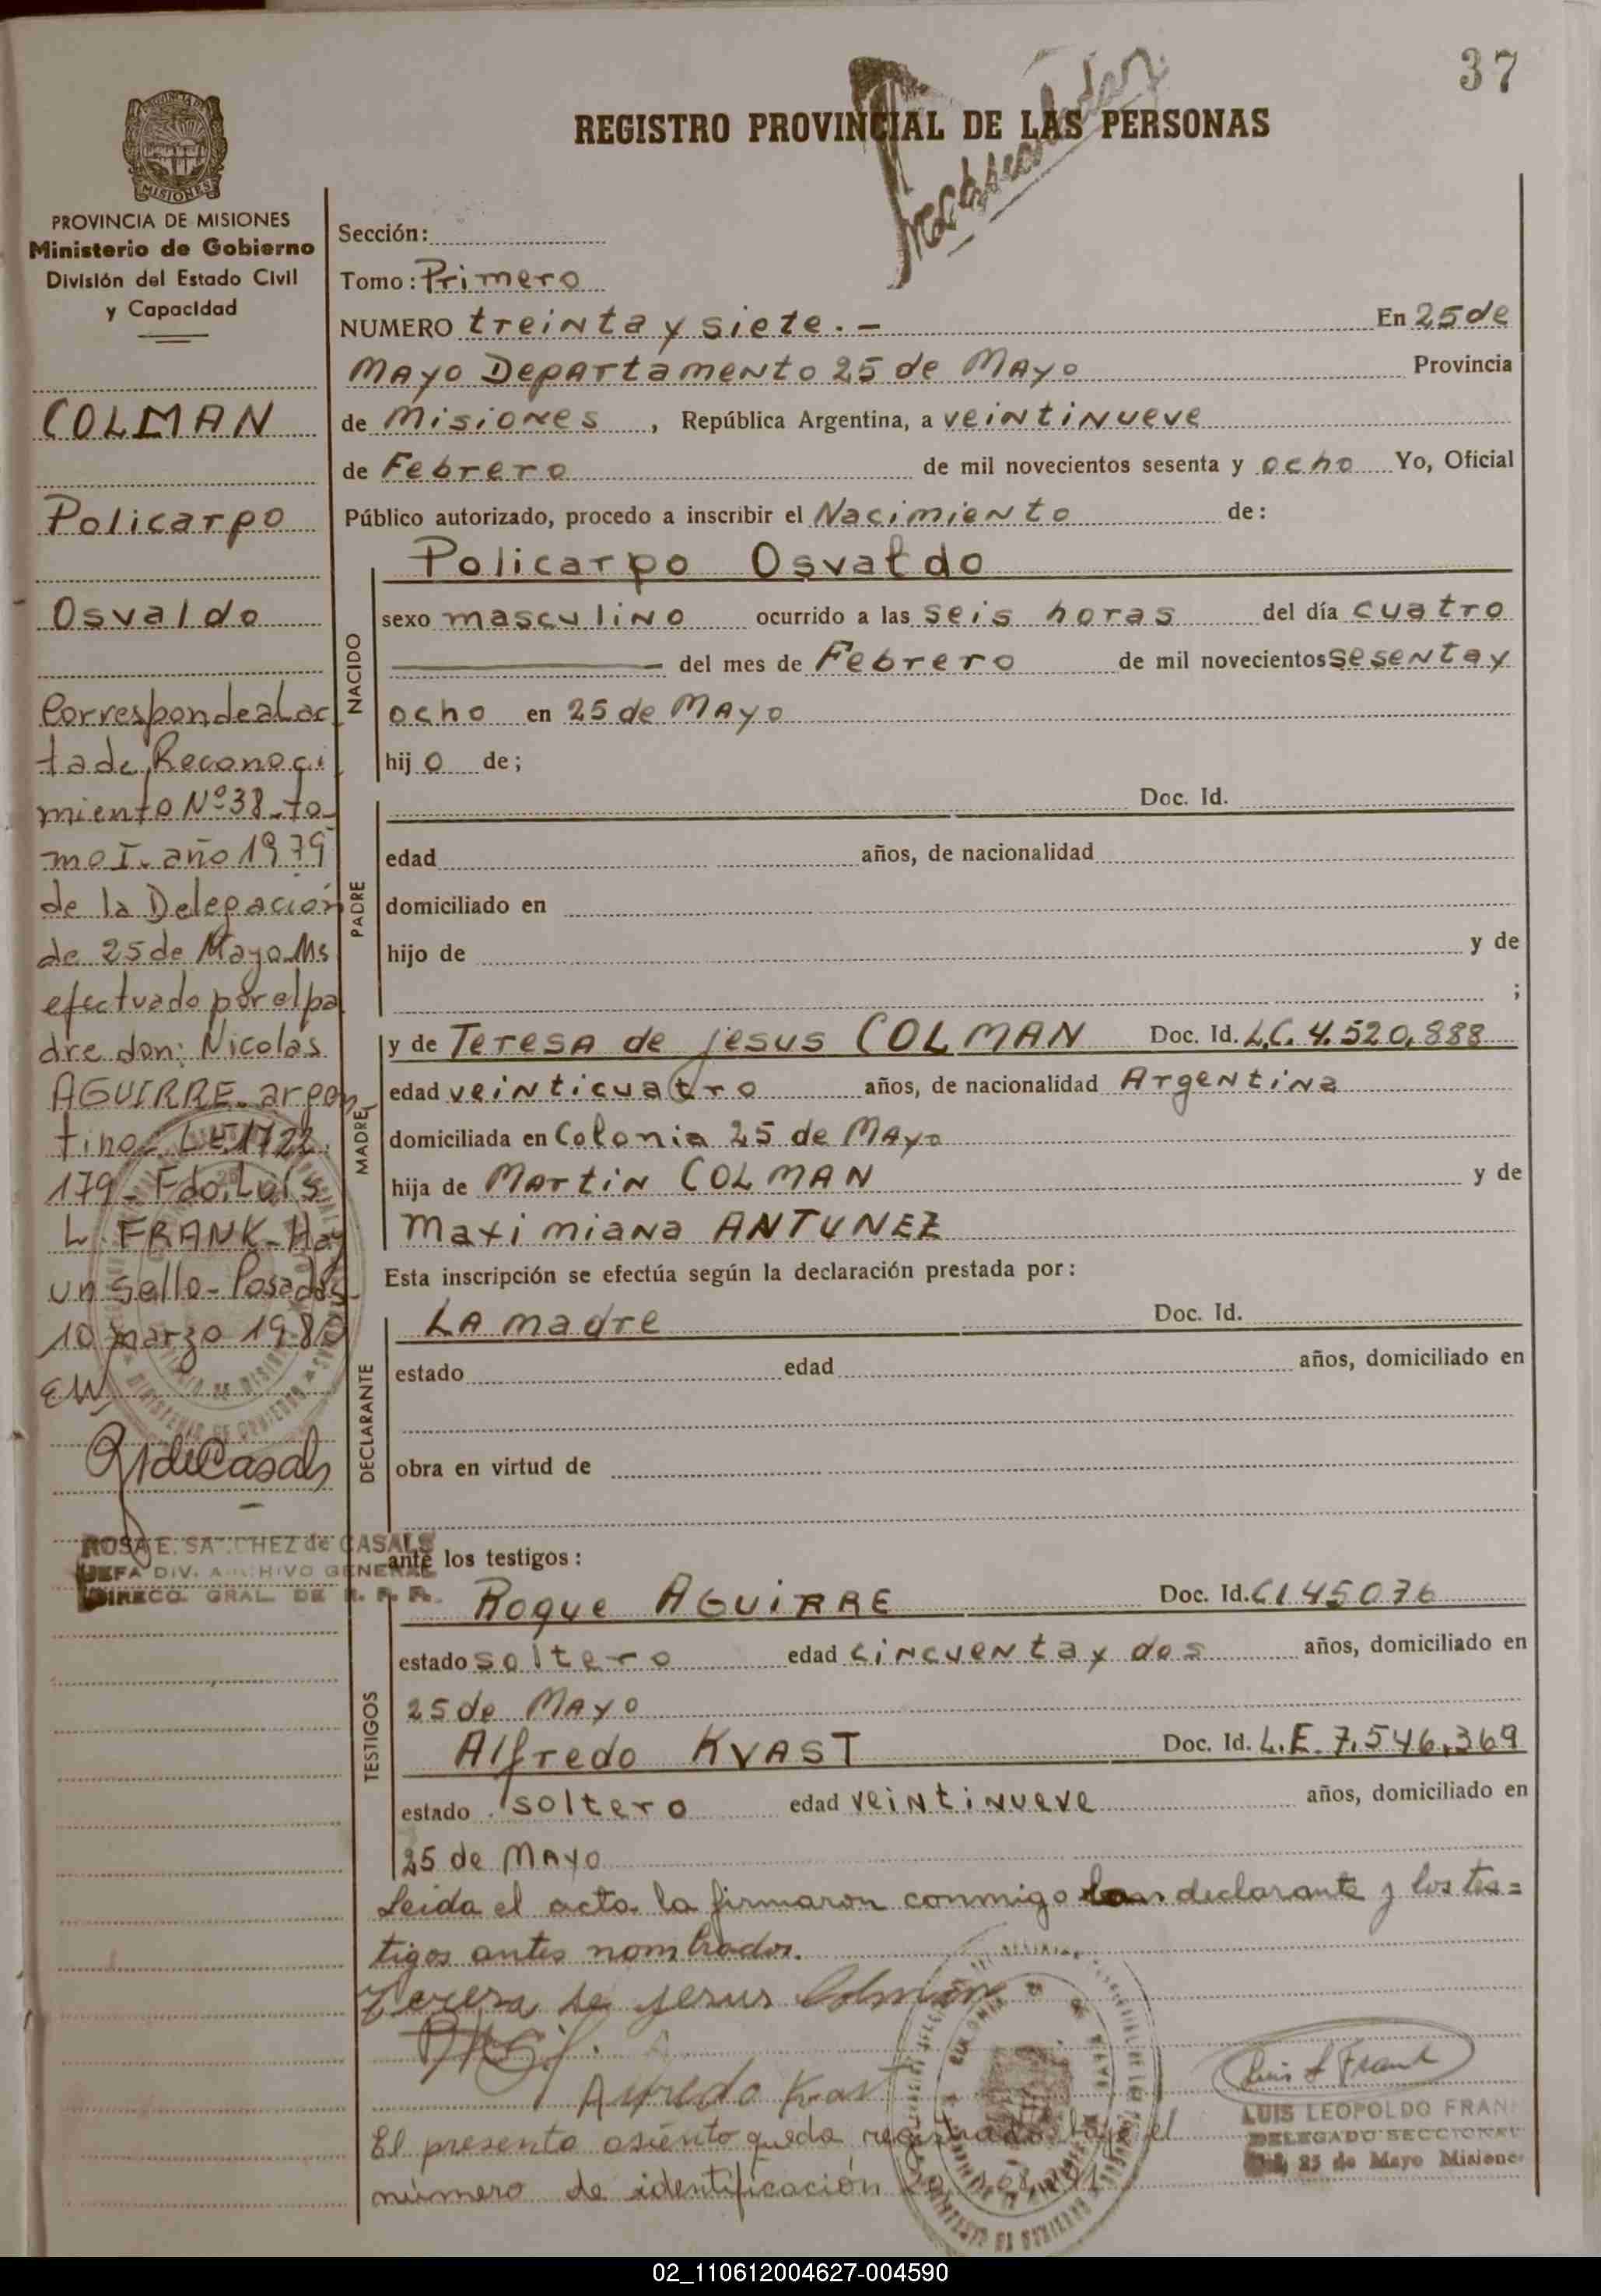 37
REGISTRO PROVINCIAL DE LAS PERSONAS
MISIONES
PROVINCIA DE MISIONES
Ministerio de Gobierno
División del Estado Civil
y Capacidad
COLMAN
Policarpo
Osvaldo
Corresponde al ac
ta de Reconoci
miento Nº 38 - to-
mo I. año 1979
de la Delegación
de 25 de Mayo. Ms
efectuado por el pa
dre don: Nicolas
AGUIRRE. argen
tino L.E. 1722.
179 - Fdo. Luis
L. FRANK - Hay
un Sello - Posadas
10 marzo 1980
EW
ROSA E. SANCHEZ de CASALS
JEFA DIV. ARCHIVO GENERAL
DIRECC. GRAL. DE R. P. P.
Sección:
Tomo: Primero
NUMERO treinta y siete. - En 25 de
Mayo Departamento 25 de Mayo Provincia
de Misiones, República Argentina, a veintinueve
de Febrero de mil novecientos sesenta y ocho Yo, Oficial
Público autorizado, procedo a inscribir el Nacimiento de:
NACIDO
Policarpo Osvaldo
sexo masculino ocurrido a las seis horas del día cuatro
del mes de Febrero de mil novecientos sesenta y
ocho en 25 de Mayo
hijo de;
PADRE
Doc. Id.
edad años, de nacionalidad
domiciliado en
hijo de y de
;
MADRE
y de Teresa de jesus COLMAN Doc. Id. L.C. 4.520.888
edad veinticuatro años, de nacionalidad Argentina
domiciliada en Colonia 25 de Mayo
hija de Martin COLMAN y de
Maximiana ANTUNEZ
Esta inscripción se efectúa según la declaración prestada por:
DECLARANTE
La madre Doc. Id.
estado edad años, domiciliado en
obra en virtud de
ante los testigos:
TESTIGOS
Roque AGUIRRE Doc. Id. CI 45076
estado soltero edad cincuenta y dos años, domiciliado en
25 de Mayo
Alfredo KVAST Doc. Id. L.E. 7.546.369
estado soltero edad veintinueve años, domiciliado en
25 de Mayo
Leida el acta la firmaron conmigo la declarante y los tes=
tigos antes nombrados.
Teresa de jesus Colman
Alfredo Kvast
Luis L Frank
LUIS LEOPOLDO FRANK
DELEGADO SECCIONAL
25 de Mayo Misiones
El presente asiento queda registrado bajo el
número de identificación
02_110612004627-004590